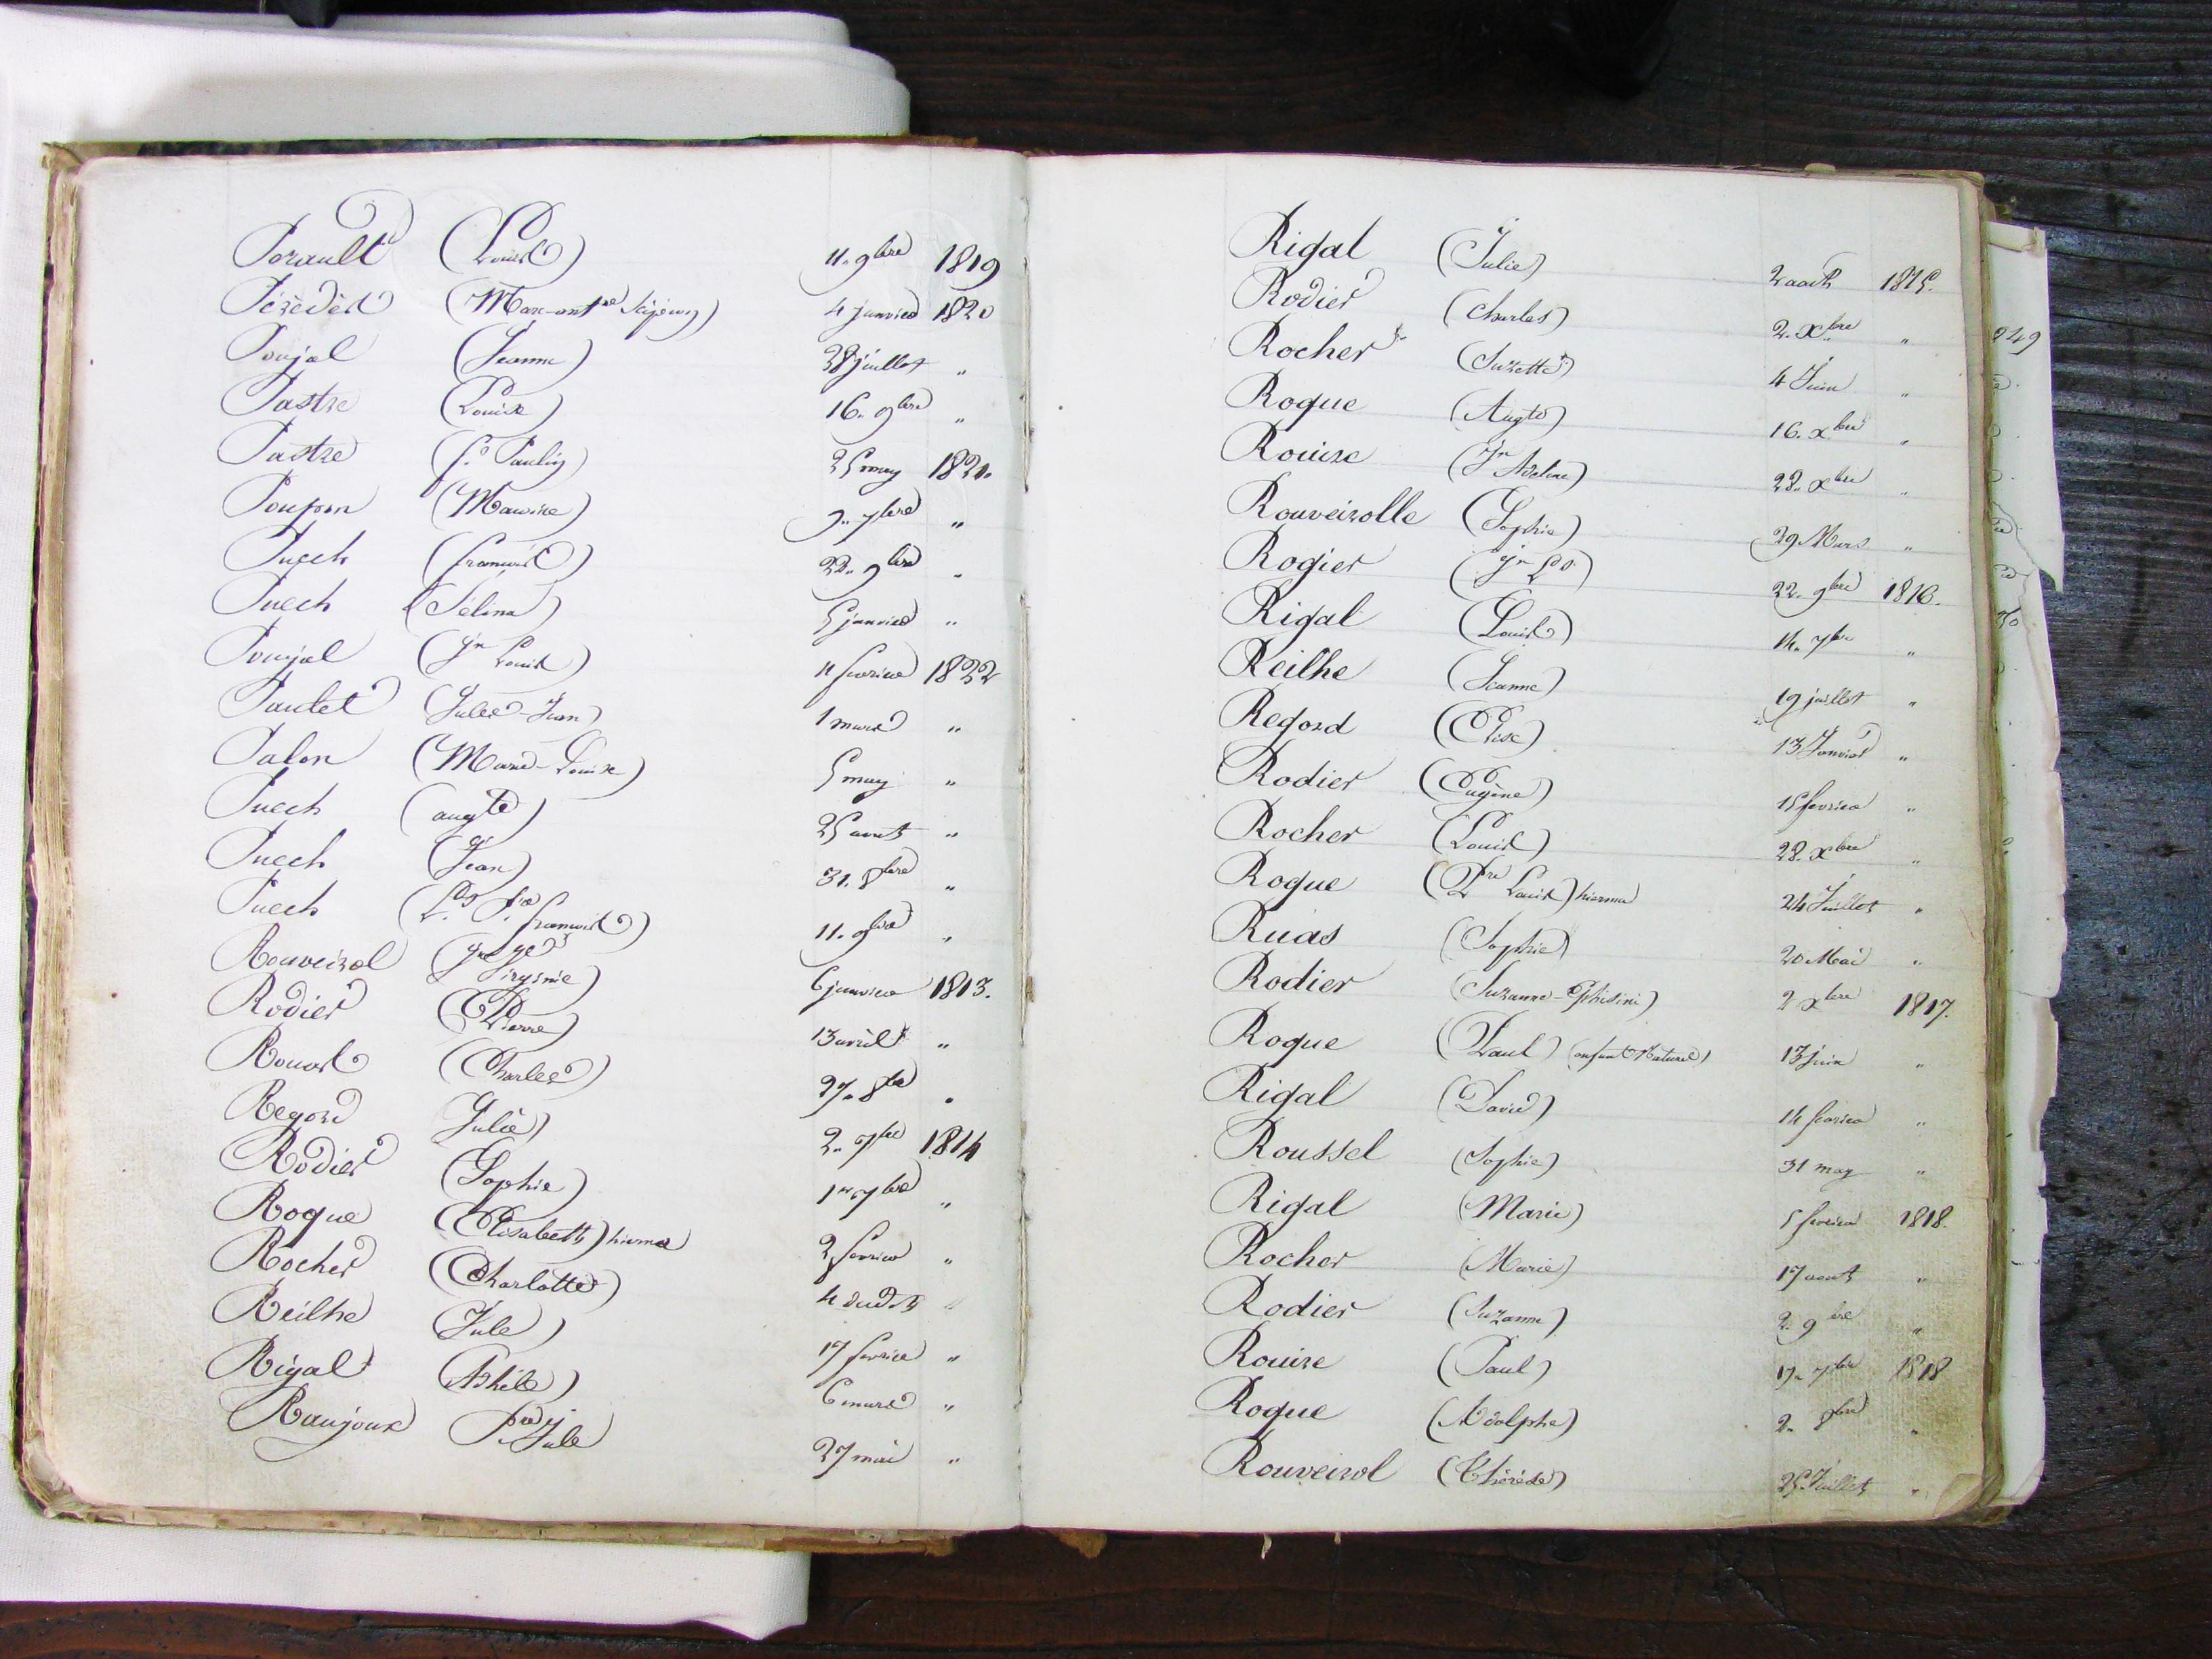 Perault (Louis) 11. 9bre 1819
(Marc-ant.ne) 4 janvier 1820
Poujol (Jeanne) 28 juillet "
Pastre (Louise) 16. 9bre "
Pastre (f.s Paulin) 25 may 1821.
(Maurice) 9. 7bre "
Puech (francois) 22. 9bre "
Puech (Sélina) 5 janvier "
Poujol (Jn Louis) 11 fevrier 1822
Paulet (Jules-Jean) 1 mars "
Palon (Marie-Louise) 5 may "
Puech (augte) 25 aout "
Puech (Jean) 31. 8bre "
Puech (francois) 11. 9bre "
Rouveirol (Virginie) 6 janvier 1813.
Rodier (Pierre) 13 avril "
(Charles) 27. 8bre "
Regord Julie) 2. 7bre 1814
Rodier (Sophie) 1er 7bre "
Roque (Elisabeth) 2 fevrier "
Rocher (Charlotte) 4 "
Reilhe (Jule) 17 fevrier "
Rigal (Achile) 6 mars "
Raujoux Jule 27 mai "
Rigal (Julie) 2 aout 1815.
Rodier (Charles) 2. Xbre "
Rocher (Suzette) 4 Juin "
Roque (Augte) 16. Xbre "
Rouire (Jn Adeline) 28. Xbre "
Rouveirolle (Sophie) 29 Mars "
Rogier (Jn Ls) 22. 9bre 1816.
Rigal (Louis) 14. 7bre "
Reilhe (Jeanne) 19 juillet "
Regord (Elise) 13 Janvier "
Rodier (Eugène) 15 fevrier "
Rocher (Louis) 28. Xbre "
Roque (Pre Louis) 24 Juillet "
Ruas (Sophie) 20 Mai "
Rodier (Suzanne-) 2 Xbre 1817.
Roque (Paul) (enfant Naturel) 13 juin "
Rigal (David) 14 fevrier "
Roussel (Sophie) 31 may "
Rigal (Marie) 5 fevrier 1818.
Rocher (Marie) 17 aout "
Rodier (Suzanne) 2. 9bre "
Rouire (Paul) 17. 7bre 1818
Roque (Adolphe) 2. 8bre "
Rouveirol (Thérèse) 25 Juillet "
249